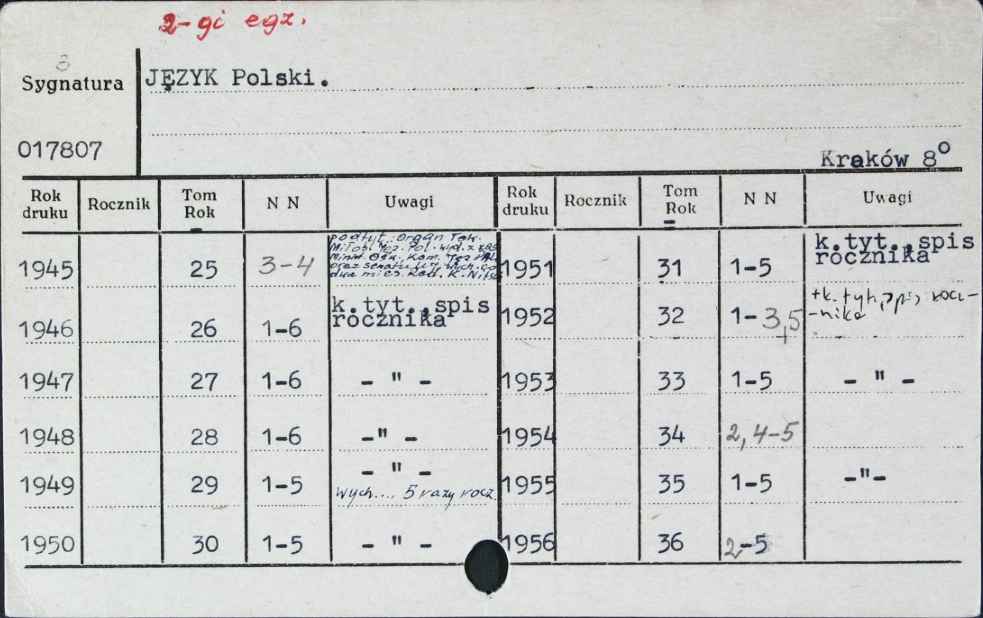 2-gi egz.
8
Sygnatura
JĘZYK Polski.
017807
Kraków 8°
Rok druku Rocznik Tom Rok N N Uwagi Rok druku Rocznik Tom Rok N N Uwagi
1945 25 3-4 podtyt. Organ Tow.
Miłośn. Jęz. Pol.
co
dwa mies. Red. K. Nitsch
1951 31 1-5 k.tyt.,spis
rocznika
1946 26 1-6 k.tyt.,spis
rocznika
1952 32 1-3,5 +k. tyt., spis rocz-
-nika
1947 27 1-6 - " - 1953 33 1-5 - " -
1948 28 1-6 -" - 1954 34 2, 4-5
1949 29 1-5 - " -
wych.... 5 razy rocz.
1955 35 1-5 -"-
1950 30 1-5 - " - 1956 36 2-5